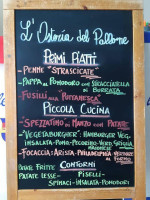 L'Osteria del Pallone
PRIMI PIATTI
- PENNE "STRASCICATE"
- PAPPA AL POMODORO CON STRACCIATELLA DI
BURRATA
- FUSILLI ALLA "PUTTANESCA"
PICCOLA CUCINA
- SPEZZATINO DI MANZO CON PATATE
- "VEGETABURGHER": HAMBURGER VEG.
INSALATA-POMO-PECORINO-VERD. GRIGLIA
MAIONESE
- FOCACCIA: ARISTA-PHILADELPHIA
AL FORNO
CONTORNI
PATATE LESSE-
PISELLI-
SPINACI-INSALATA-POMODORI